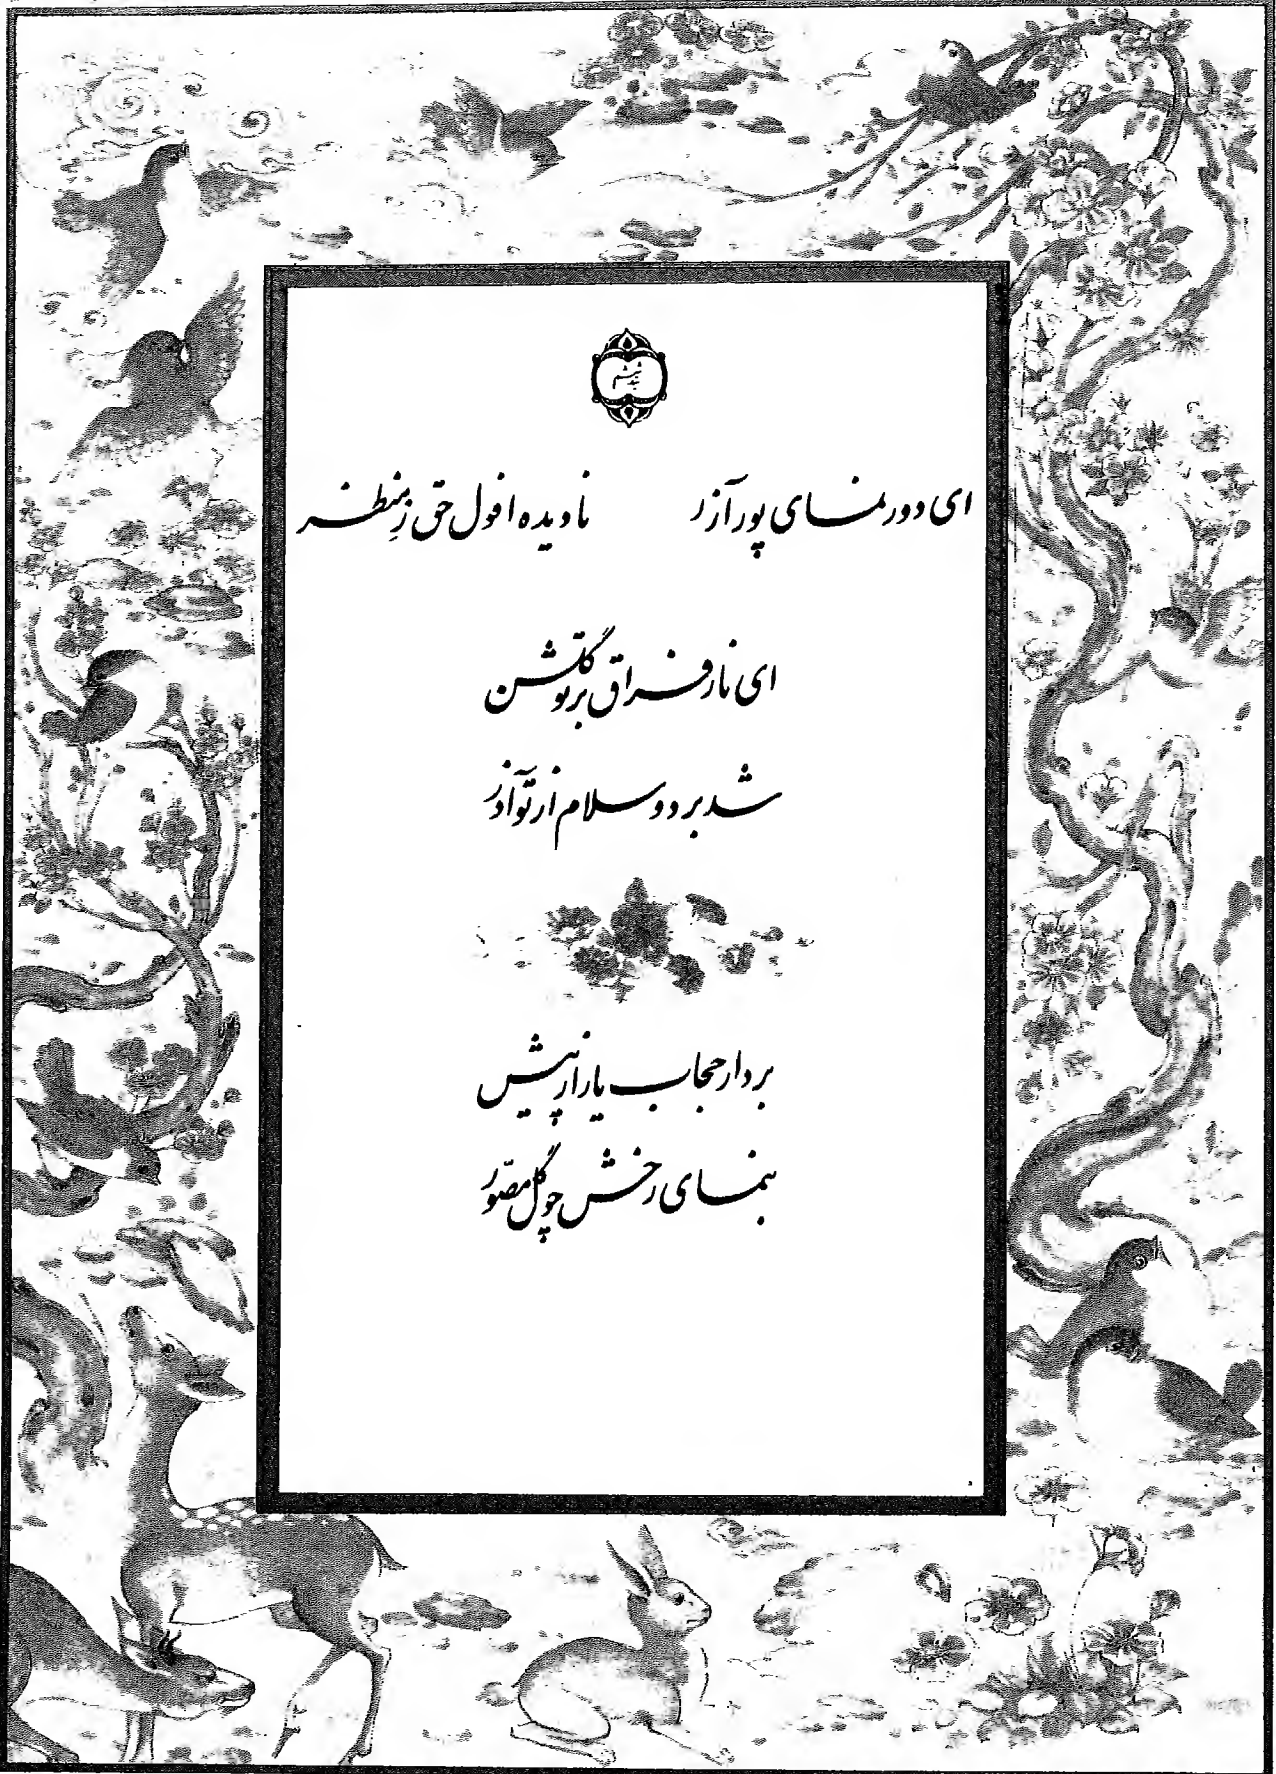 بند ششم
ای دور نمای پور آزر نادیده افول حق ز منظر
ای نار فراق بر تو گلشن
شد برد و سلام از تو آذر
بردار حجاب یار از پیش
بنمای رخش چو گل مصوّر